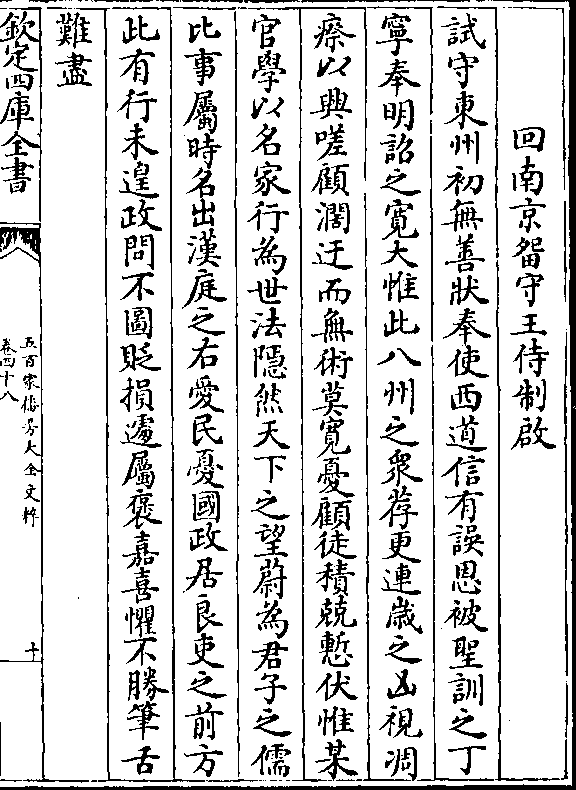 回南京留守王侍制啟
試守東州初無善狀奉使西道信有誤恩被聖訓之丁
寧奉明詔之寛大惟此八州之衆荐更連歲之凶視凋
瘵以興嗟顧濶迂而無術莫寛憂顧徒積兢慙伏惟某
官學以名家行為世法隱然天下之望蔚為君子之儒
比事屬時名出漢庭之右愛民憂國政居良吏之前方
此有行未遑政問不圖貶損遽屬褒嘉喜懼不勝筆舌
難盡
欽定四庫全書
五百家播芳大全文粹
卷四十八
十